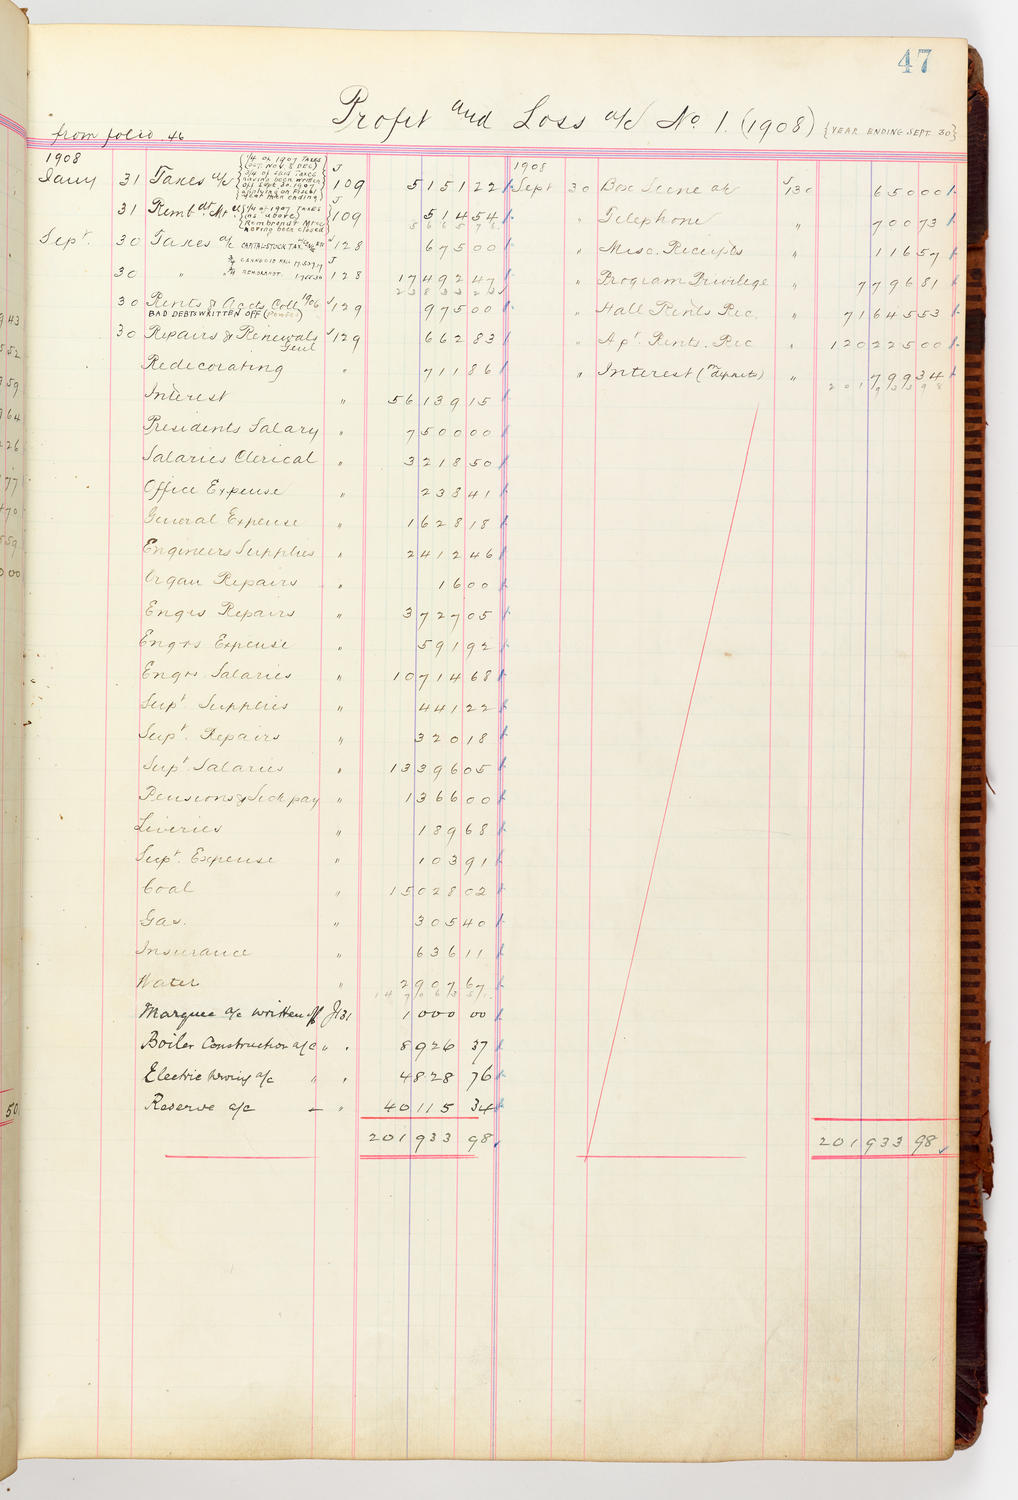 47
Profit and Loss a/c No 1. (1908) {YEAR ENDING SEPT. 30}
from folio 46
1908
Jany 31 Taxes a/c {1/4 of 1907 TAXES (OCT. NOV. & DEC) 3/4 of said TAXES having been written off Sept. 30, 1907 applying on Fiscal year then ending} J 109 5151 22
31 Remb dt Mt a/c {1/4 of 1907 TAXES (as above) Rembrandt Mtge having been closed} J 109 514 54
5665 76
Sept. 30 Taxes a/c CAPITAL STOCK TAX J 128 675 00
3/4 CARNEGIE HALL
30 " " 3/4 REMBRANDT. J 128 17492 47
23833 23
30 Rents & Accts Coll. 1906 J 129 975 00
BAD DEBTS WRITTEN OFF
30 Repairs & Renewals Genl J 129 662 83
Redecorating " 711 86
Interest " 56139 15
Presidents Salary " 7500 00
Salaries Clerical " 3218 50
Office Expense " 238 41
General Expense " 1628 18
Engineers Supplies " 2412 46
Organ Repairs " 16 00
Engrs Repairs " 3727 05
Engrs Expense " 591 92
Engrs Salaries " 10714 68
Supt Supplies " 441 22
Supt. Repairs " 320 18
Supt Salaries " 13396 05
Pensions & Sick pay " 1366 00
Liveries " 189 68
Supt. Expense " 103 91
Coal " 15028 02
Gas. " 305 40
Insurance " 636 11
Water " 2907 67
Marquee a/c written off J131 1000 00
Boiler Construction a/c " " 8926 37
Electric Wiring a/c " " 4828 76
Reserve a/c — " 40115 34
201933 98
1908
Sept 30 Box Scene a/c J130 650 00
" Telephone " 700 73
" Misc. Receipts " 116 57
" Program Privilege " 7796 81
" Hall Rents Rec. " 71645 53
" Apt. Rents. Rec " 120225 00
" Interest (on deposits) " 799 34
201933 98
201933 98